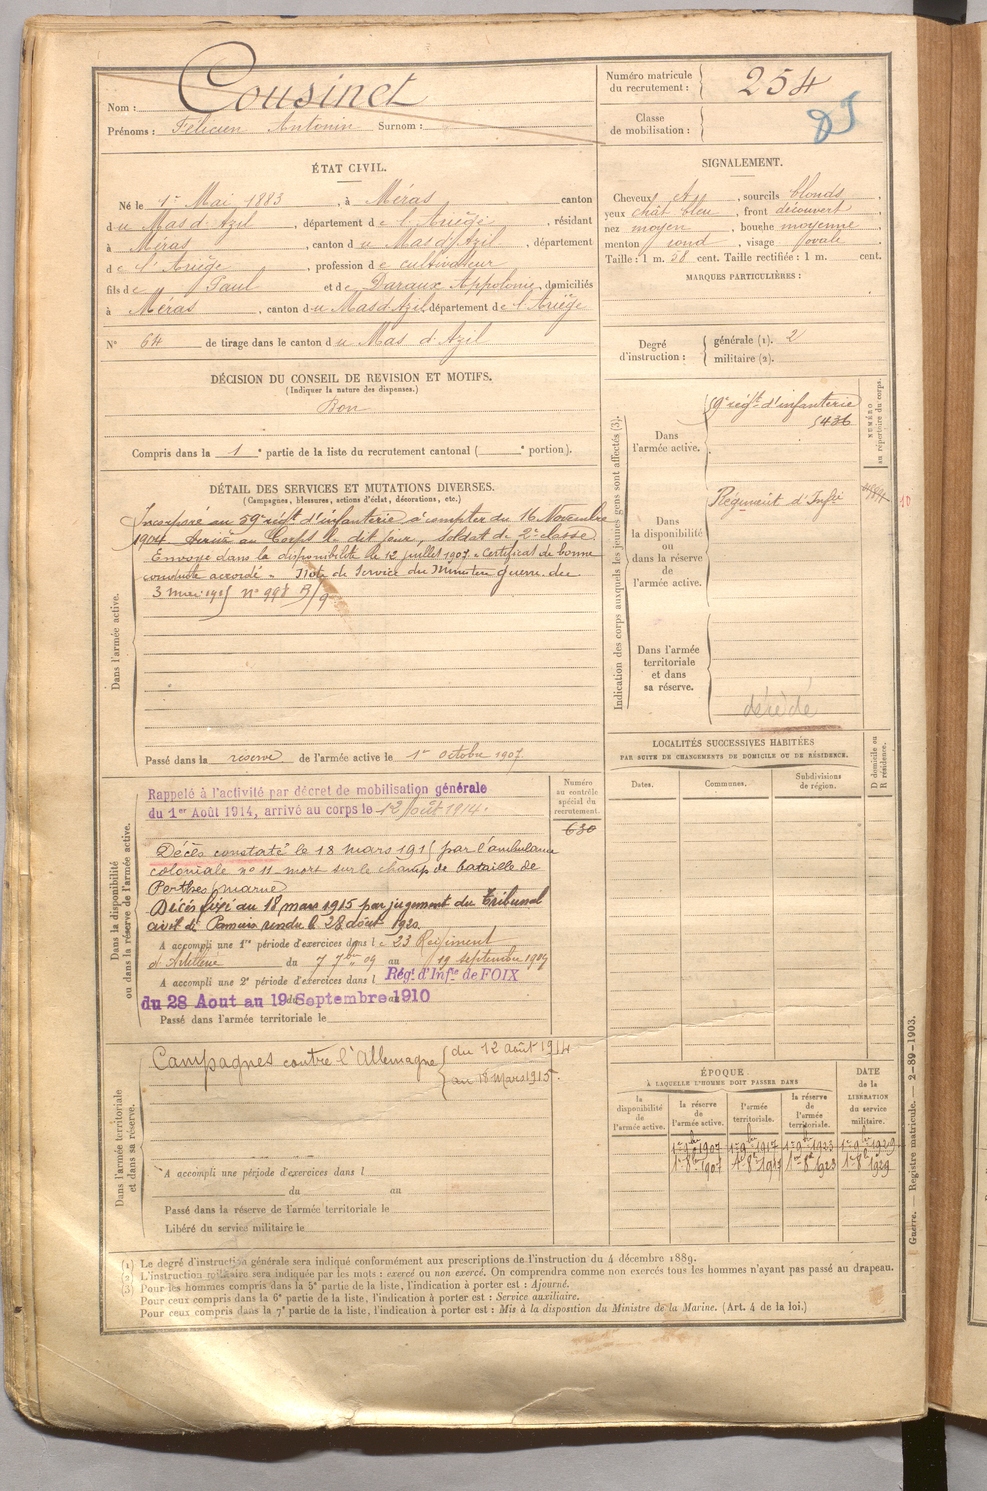 Nom : Cousinet
Prénoms : Félicien Antonin Surnom :
Numéro matricule du recrutement : 254
Classe de mobilisation :
ÉTAT CIVIL.
Né le 1er Mai 1883, à Méras canton
du Mas d'Azil, département de l'Ariège, résidant
à Méras, canton du Mas d'Azil, département
de l'Ariège, profession de cultivateur
fils de Paul et de Daraux Appolonie, domiciliés
à Méras, canton du Mas d'Azil, département de l'Ariège
N° 64 de tirage dans le canton du Mas d'Azil
DÉCISION DU CONSEIL DE REVISION ET MOTIFS.
(Indiquer la nature des dispenses.)
Bon
Compris dans la 1e partie de la liste du recrutement cantonal ( e portion).
DÉTAIL DES SERVICES ET MUTATIONS DIVERSES.
(Campagnes, blessures, actions d'éclat, décorations, etc.)
Dans l'armée active.
Incorporé au 59e régt d'infanterie à compter du 16 Novembre
1904. Arrivé au Corps le dit jour, soldat de 2e classe
Envoyé dans la disponibilité le 12 juillet 1907. Certificat de bonne
conduite accordé. Note de Service du Ministère guerre du
3 mars 1915 n° 998 5/9
Passé dans la réserve de l'armée active le 1er octobre 1907.
SIGNALEMENT.
Cheveux , sourcils blonds,
yeux chât bleu, front découvert,
nez moyen, bouche moyenne
menton rond, visage ovale.
Taille : 1 m. cent. Taille rectifiée : 1 m. cent.
MARQUES PARTICULIÈRES :
Degré d'instruction : générale (1). 2
militaire (2).
Indication des corps auxquels les jeunes gens sont affectés (3).
NUMÉRO au répertoire du corps.
Dans l'armée active.
59e régt d'infanterie
5436
Dans la disponibilité ou dans la réserve de l'armée active.
Régiment d'Infie
Dans l'armée territoriale et dans sa réserve.
décédé
LOCALITÉS SUCCESSIVES HABITÉES
PAR SUITE DE CHANGEMENTS DE DOMICILE OU DE RÉSIDENCE.
Dates. Communes. Subdivisions de région. D domicile ou R résidence.
Dans la disponibilité ou dans la réserve de l'armée active.
Numéro au contrôle spécial du recrutement.
630
Rappelé à l'activité par décret de mobilisation générale
du 1er Août 1914, arrivé au corps le 12 Août 1914.
Décès constaté le 18 mars 1915 par l'ambulance
coloniale n° 11 mort sur le champ de bataille de
Perthes, marne
Décès fixé au 18 mars 1915 par jugement du Tribunal
civil de Pamiers rendu le 28 août 1920.
A accompli une 1re période d'exercices dans le 23 Régiment
d'Artillerie du 7 7bre 09 au 19 septembre 1909
A accompli une 2e période d'exercices dans l Régt d'Infie de FOIX
du 28 Aout au 19 Septembre 1910
Passé dans l'armée territoriale le
Dans l'armée territoriale et dans sa réserve.
Campagnes contre l'Allemagne { du 12 août 1914
au 18 Mars 1915.
A accompli une période d'exercices dans l
du au
Passé dans la réserve de l'armée territoriale le
Libéré du service militaire le
ÉPOQUE
À LAQUELLE L'HOMME DOIT PASSER DANS
DATE de la LIBÉRATION du service militaire.
la disponibilité de l'armée active. la réserve de l'armée active. l'armée territoriale. la réserve de l'armée territoriale.
1er 9bre 1907 1er 9bre 1917 1er 9bre 1923 1er 9bre 1929
1er 8bre 1907 1er 8bre 1917 1er 8bre 1923 1er 8bre 1929
(1) Le degré d'instruction générale sera indiqué conformément aux prescriptions de l'instruction du 4 décembre 1889.
(2) L'instruction militaire sera indiquée par les mots : exercé ou non exercé. On comprendra comme non exercés tous les hommes n'ayant pas passé au drapeau.
(3) Pour les hommes compris dans la 5e partie de la liste, l'indication à porter est : Ajourné.
Pour ceux compris dans la 6e partie de la liste, l'indication à porter est : Service auxiliaire.
Pour ceux compris dans la 7e partie de la liste, l'indication à porter est : Mis à la disposition du Ministre de la Marine. (Art. 4 de la loi.)
Guerre. — Registre matricule. — 2-89-1903.